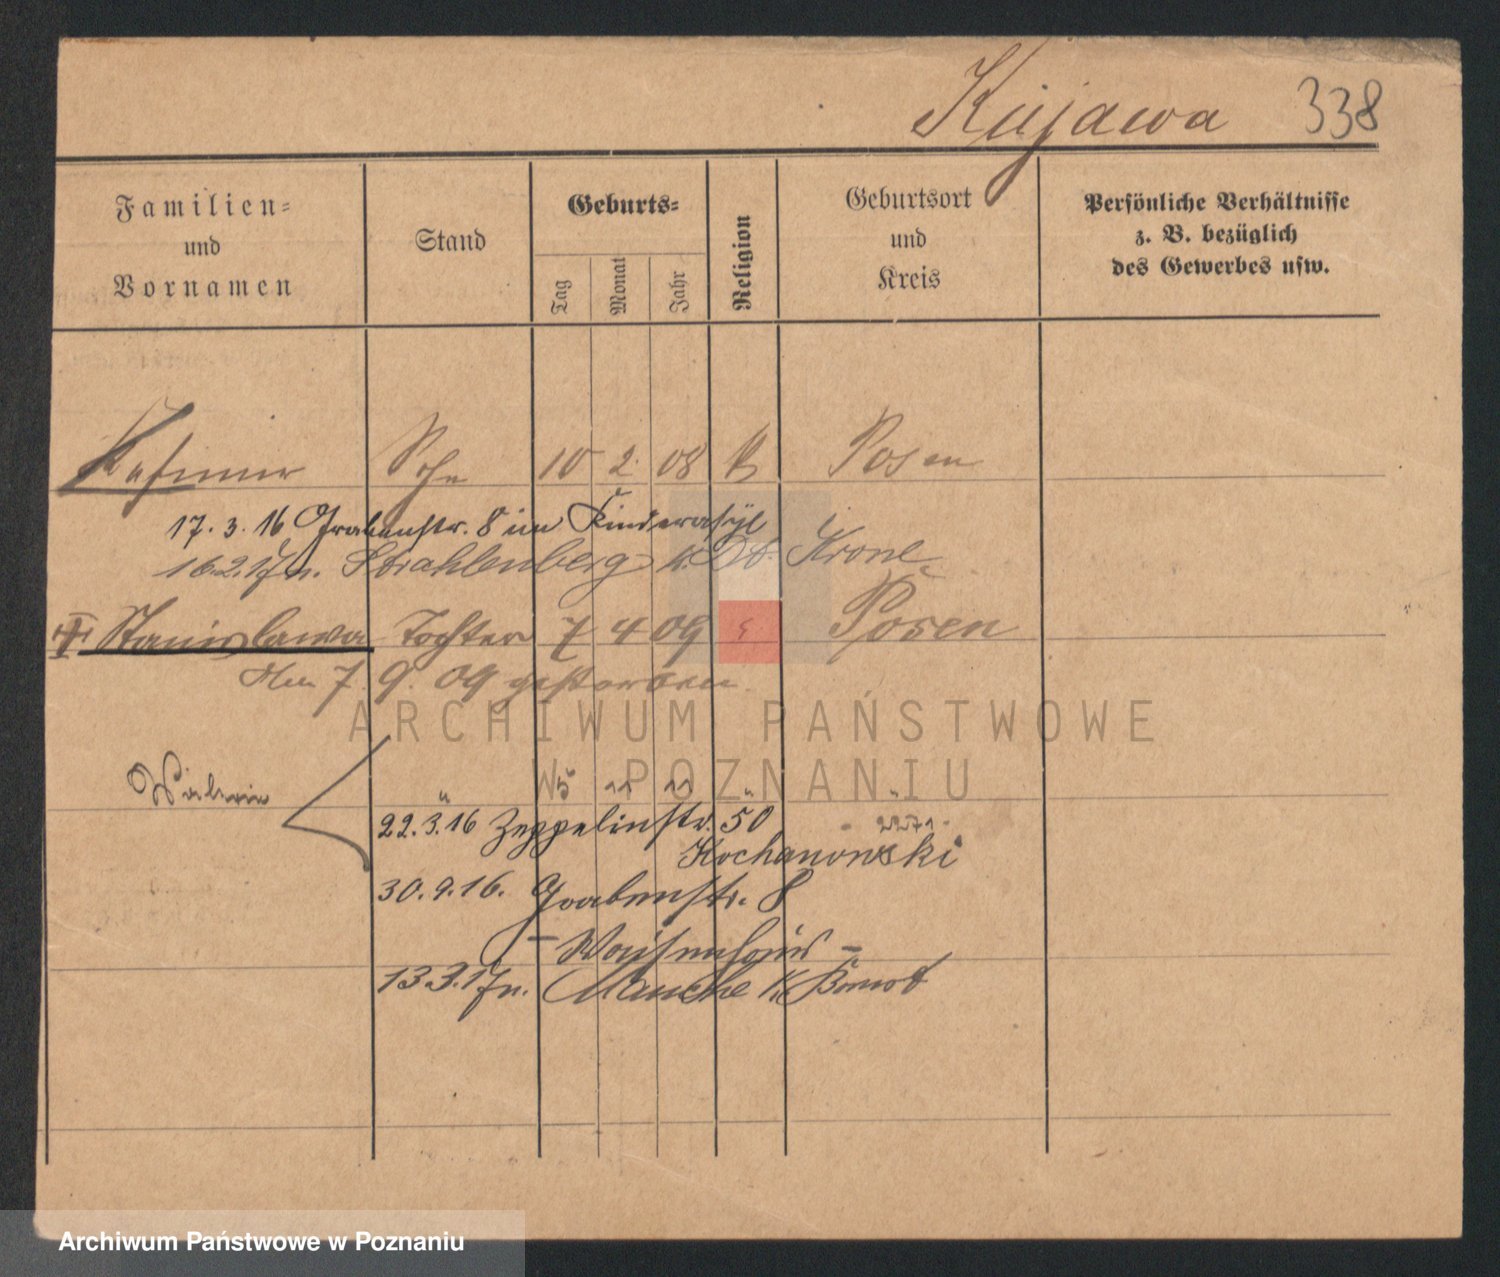 Kujawa 338
Familien-
und
Vornamen
Stand
Geburts-
Tag
Monat
Jahr
Religion
Geburtsort
und
Kreis
Persönliche Verhältnisse
z. B. bezüglich
des Gewerbes usw.
Kasimir Sohn 10 2 08 k Posen
17. 3. 16 Grabenstr. 8 im Kinderasyl
16.2.17 n. Strahlenberg K. Dt. Krone
Stanislawa Tochter 7 4 09 Posen
7. 9. 09 gestorben
" 5 11 11 " "
22.3.16 Zeppelinstr. 50
Kochanowski
30.9.16. Grabenstr. 8
- Waisenhaus -
13.3.17 n. Mauche K. Bomst
ARCHIWUM PAŃSTWOWE
W POZNANIU
Archiwum Państwowe w Poznaniu